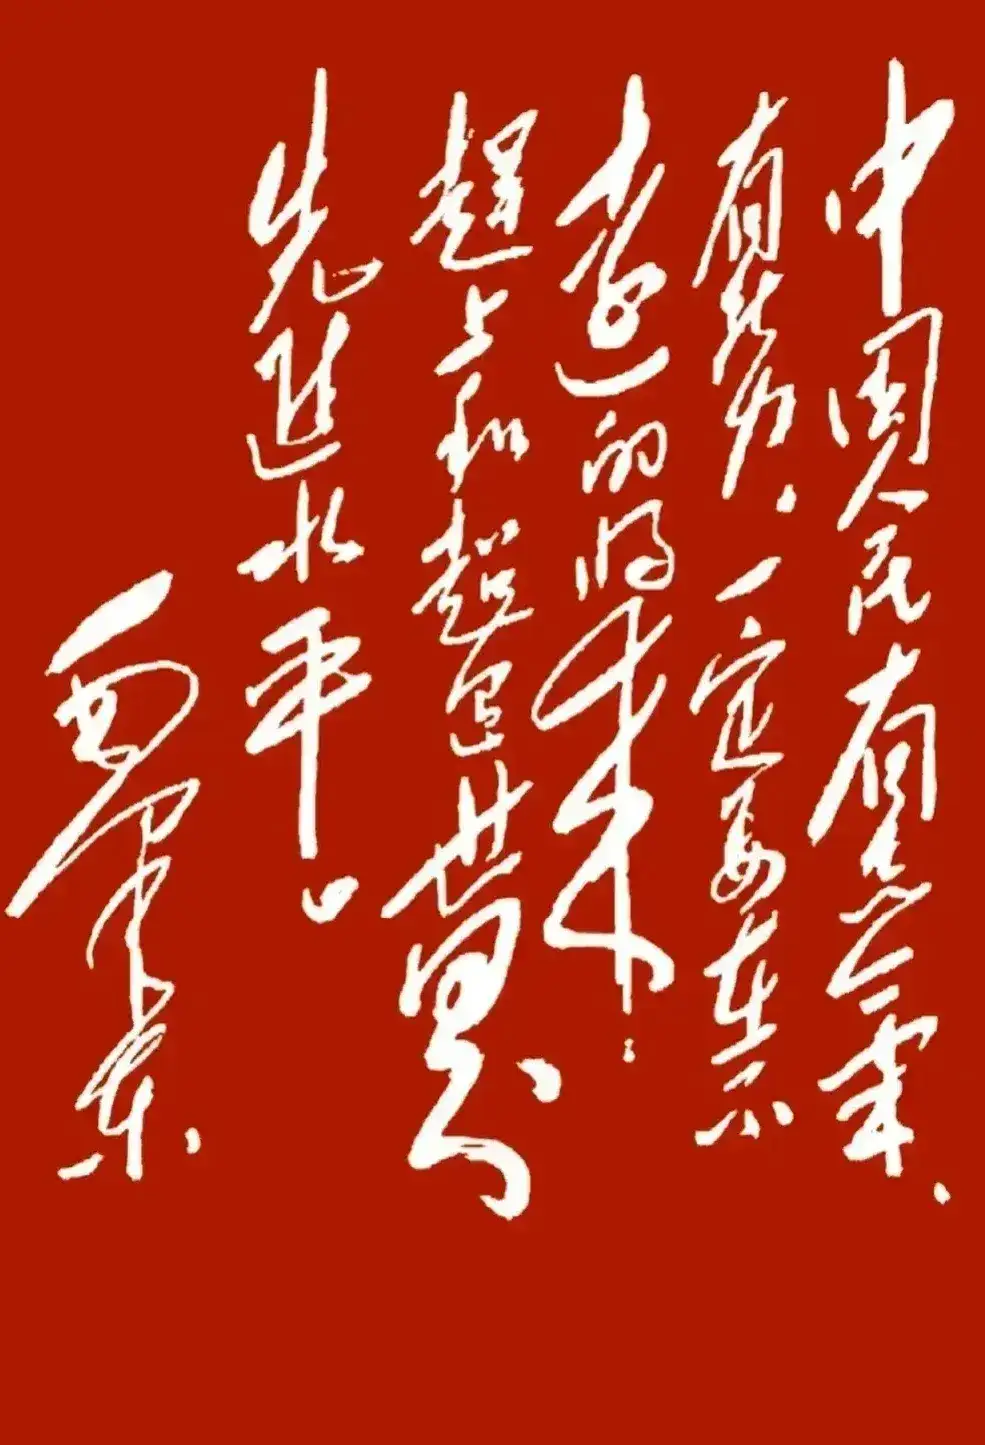 中国人民有志气、
有能力、一定要在不
远的将来
赶上和超过世界
先进水平。
毛泽东